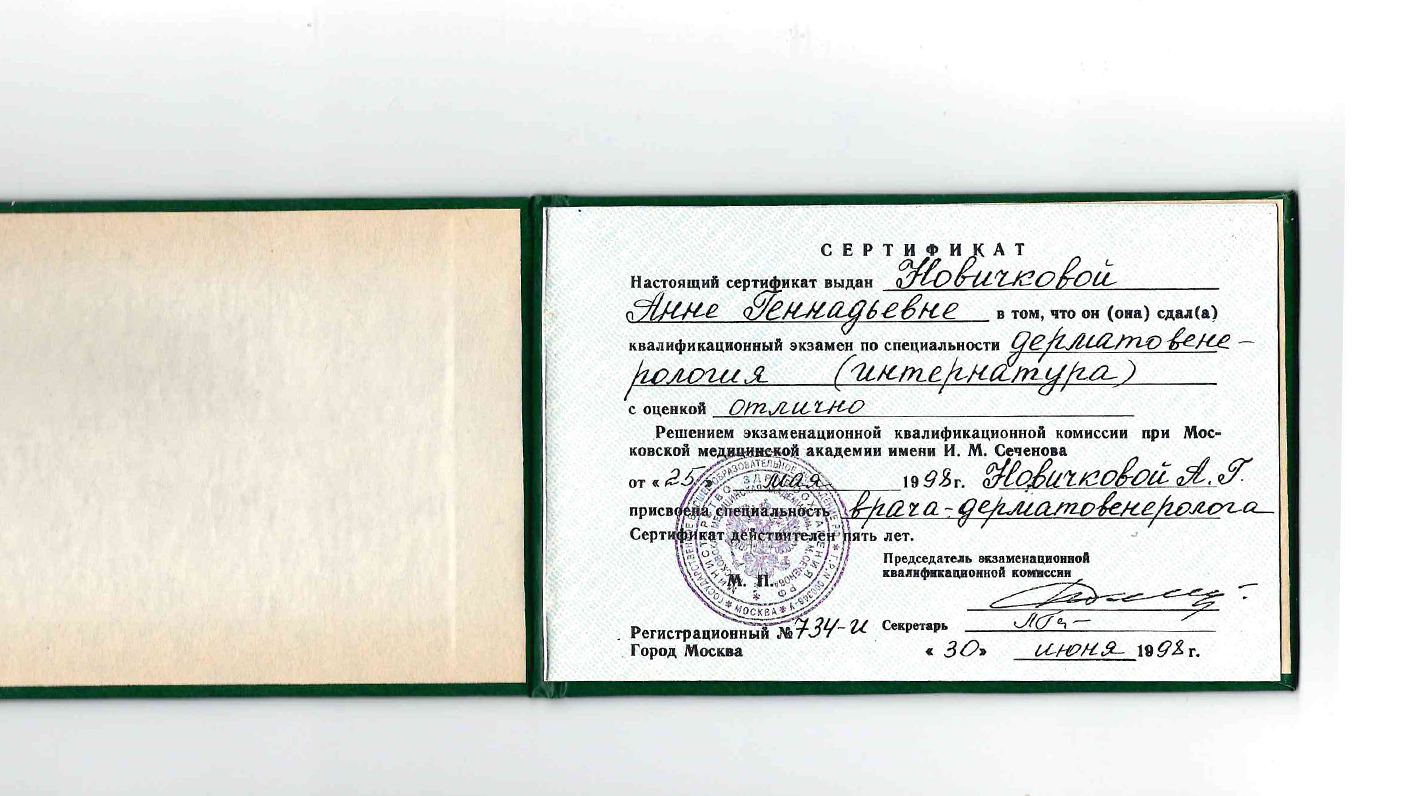 СЕРТИФИКАТ
Настоящий сертификат выдан Новичковой
Анне Геннадьевне в том, что он (она) сдал(а)
квалификационный экзамен по специальности дерматовене-
рология (интернатура)
с оценкой отлично
Решением экзаменационной квалификационной комиссии при Мос-
ковской медицинской академии имени И. М. Сеченова
от «25» мая 1998 г. Новичковой А. Г.
присвоена специальность врача-дерматовенеролога
Сертификат действителен пять лет.
Председатель экзаменационной
квалификационной комиссии
М. П.
МОСКВА
Регистрационный № 734-и Секретарь
Город Москва «30» июня 1998 г.